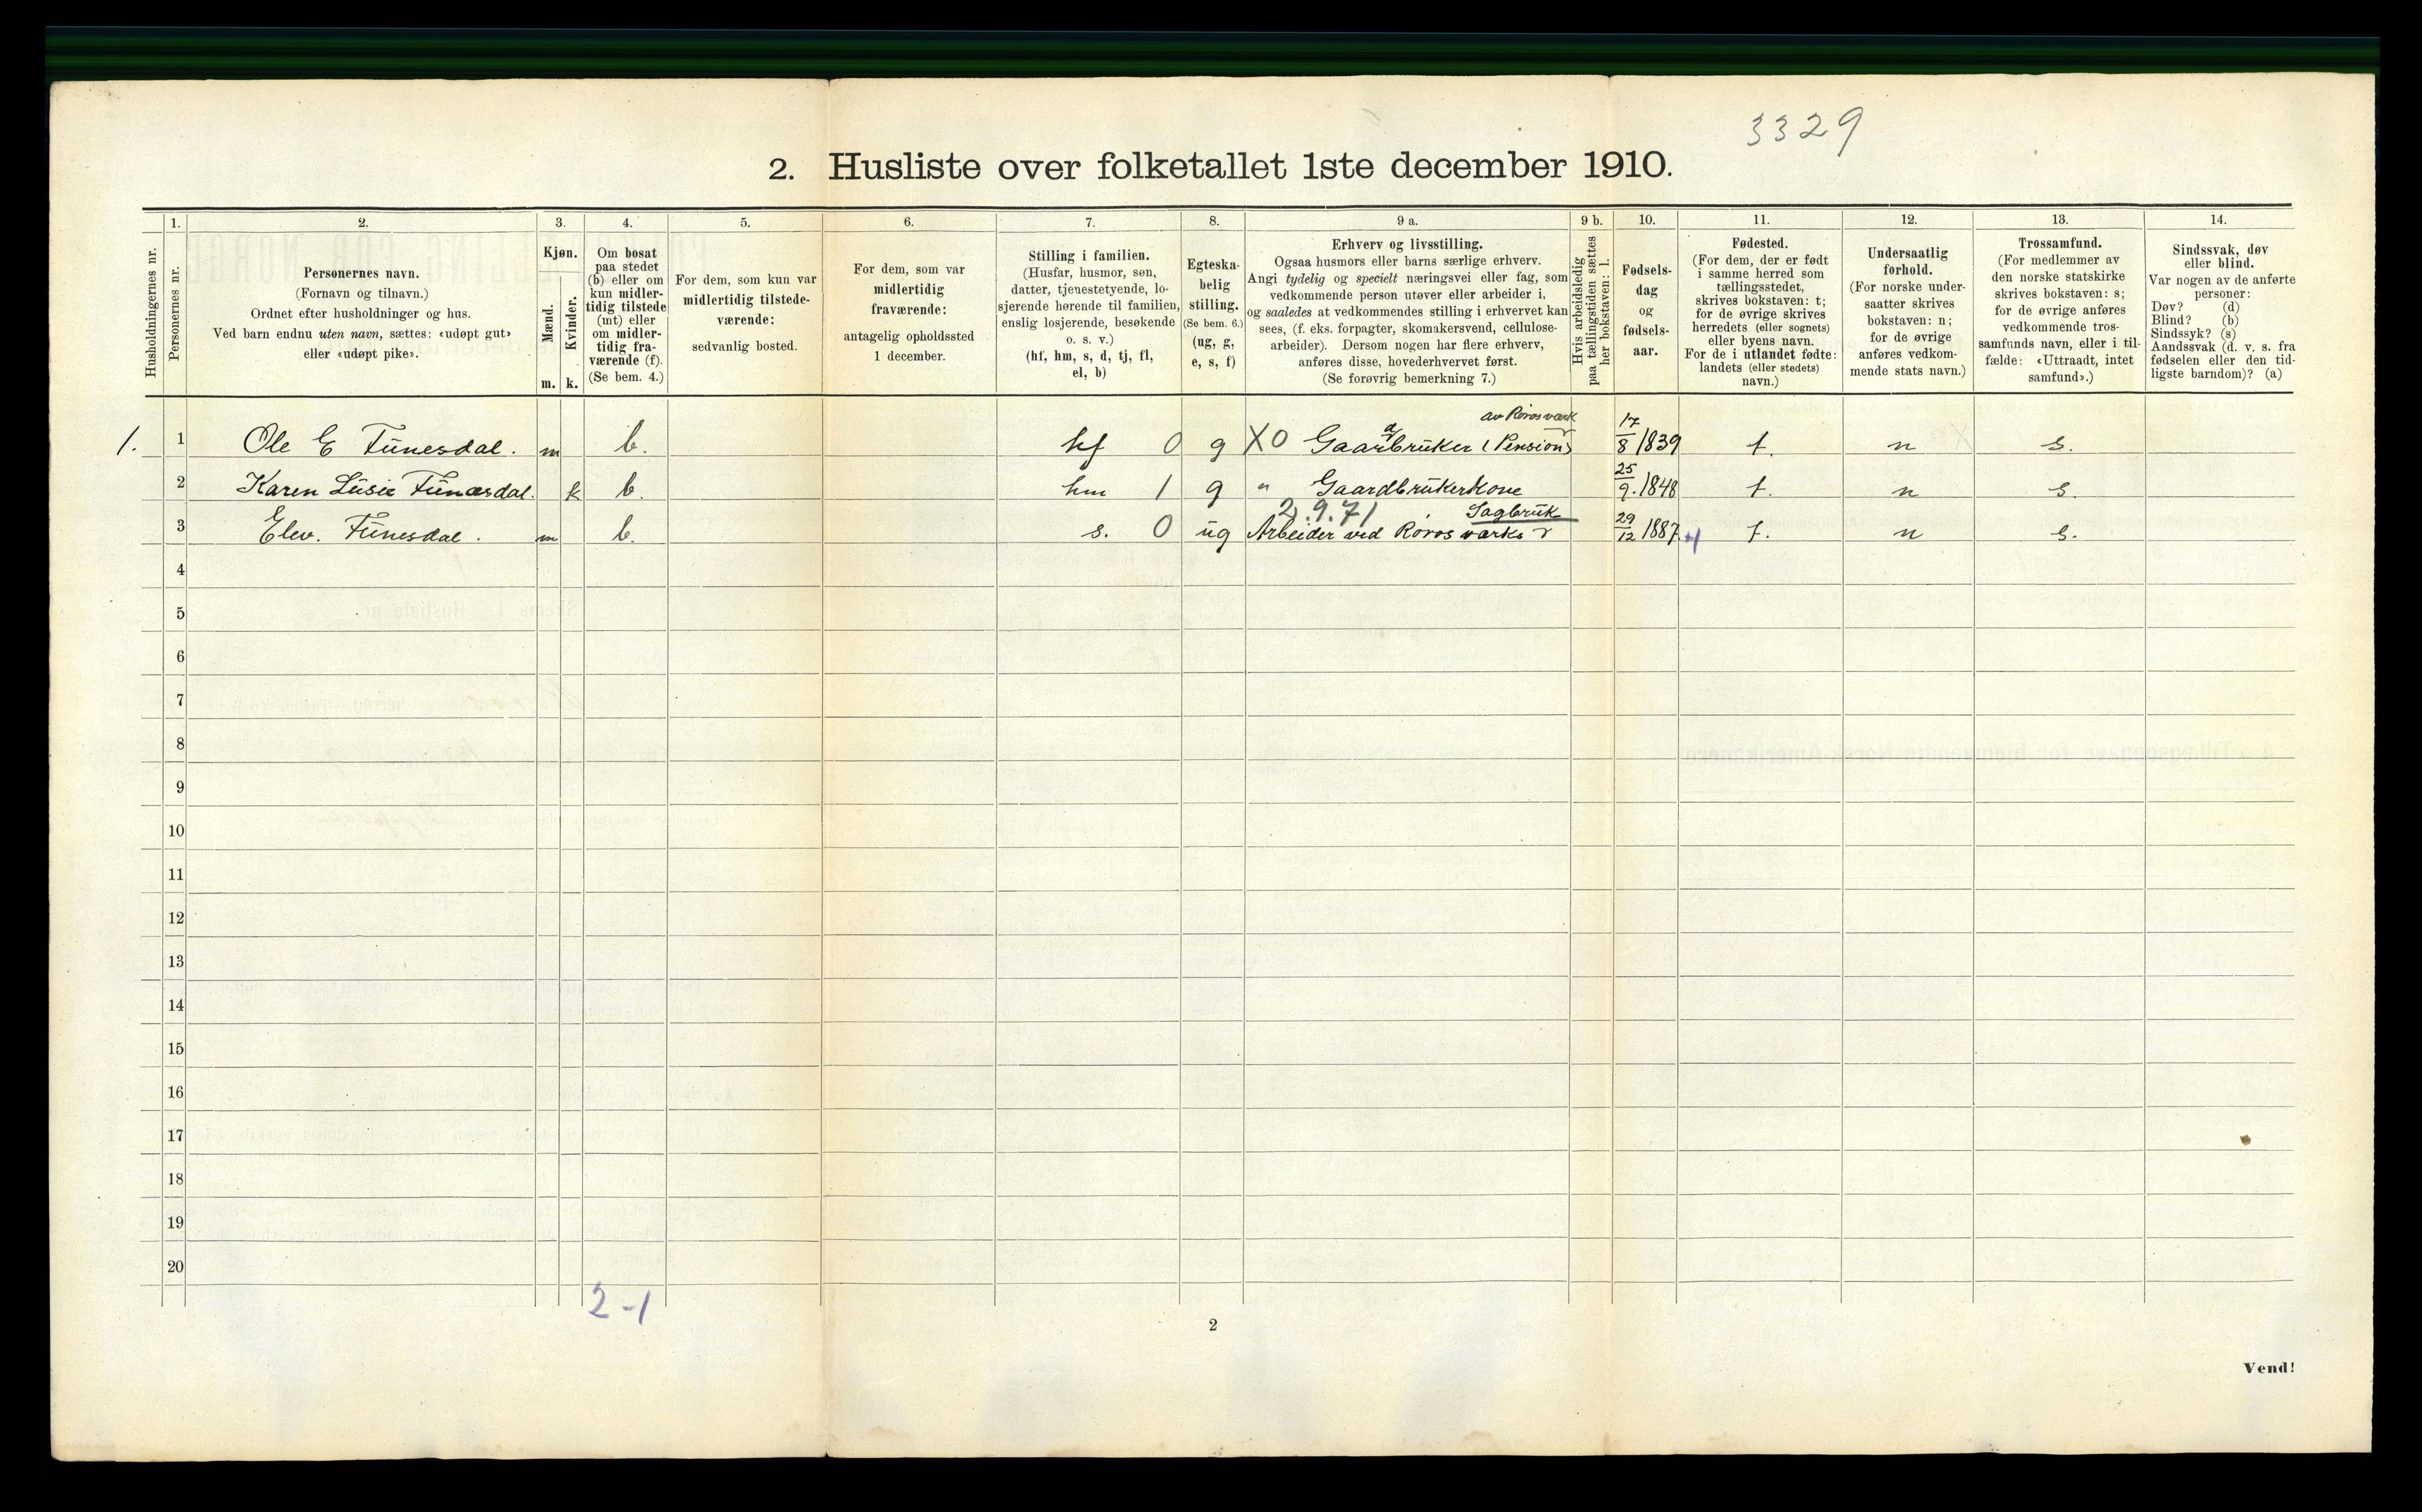 3329
2. Husliste over folketallet 1ste december 1910.
Husholdningernes nr.
1.
Personernes nr.
2.
Personernes navn.
(Fornavn og tilnavn.)
Ordnet efter husholdninger og hus.
Ved barn endnu uten navn, sættes: «udøpt gut»
eller «udøpt pike».
3.
Kjøn.
Mænd.
m.
Kvinder.
k.
4.
Om bosat
paa stedet
(b) eller om
kun midler-
tidig tilstede
(mt) eller
om midler-
tidig fra-
værende (f).
(Se bem. 4.)
5.
For dem, som kun var
midlertidig tilstede-
værende:
sedvanlig bosted.
6.
For dem, som var
midlertidig
fraværende:
antagelig opholdssted
1 december.
7.
Stilling i familien.
(Husfar, husmor, søn,
datter, tjenestetyende, lo-
sjerende hørende til familien,
enslig losjerende, besøkende
o. s. v.)
(hf, hm, s, d, tj, fl,
el, b)
8.
Egteska-
belig
stilling.
(Se bem. 6.)
(ug, g,
e, s, f)
9 a.
Erhverv og livsstilling.
Ogsaa husmors eller barns særlige erhverv.
Angi tydelig og specielt næringsvei eller fag, som
vedkommende person utøver eller arbeider i,
og saaledes at vedkommendes stilling i erhvervet kan
sees, (f. eks. forpagter, skomakersvend, cellulose-
arbeider). Dersom nogen har flere erhverv,
anføres disse, hovederhvervet først.
(Se forøvrig bemerkning 7.)
9 b.
Hvis arbeidsledig
paa tællingstiden sættes
her bokstaven: l.
10.
Fødsels-
dag
og
fødsels-
aar.
11.
Fødested.
(For dem, der er født
i samme herred som
tællingsstedet,
skrives bokstaven: t;
for de øvrige skrives
herredets (eller sognets)
eller byens navn.
For de i utlandet fødte:
landets (eller stedets)
navn.)
12.
Undersaatlig
forhold.
(For norske under-
saatter skrives
bokstaven: n;
for de øvrige
anføres vedkom-
mende stats navn.)
13.
Trossamfund.
(For medlemmer av
den norske statskirke
skrives bokstaven: s;
for de øvrige anføres
vedkommende tros-
samfunds navn, eller i til-
fælde: «Uttraadt, intet
samfund».)
14.
Sindssvak, døv
eller blind.
Var nogen av de anførte
personer:
Døv? (d)
Blind? (b)
Sindssyk? (s)
Aandssvak (d. v. s. fra
fødselen eller den tid-
ligste barndom)? (a)
av Røros værk
1. 1 Ole E Funesdal. m b. hf 0 g X0 Gaardbruker (Pension) 17/8 1839 t. n s.
2 Karen Lusie Funæsdal. k b. hm 1 g " Gaardbrukerkone 25/9. 1848 t. n s.
2.9.71 Sagbruk
3 Elev. Funesdal. m b. s. 0 ug Arbeider ved Røros værks 29/12 1887 t. n s.
4
5
6
7
8
9
10
11
12
13
14
15
16
17
18
19
20
2-1
2
Vend!